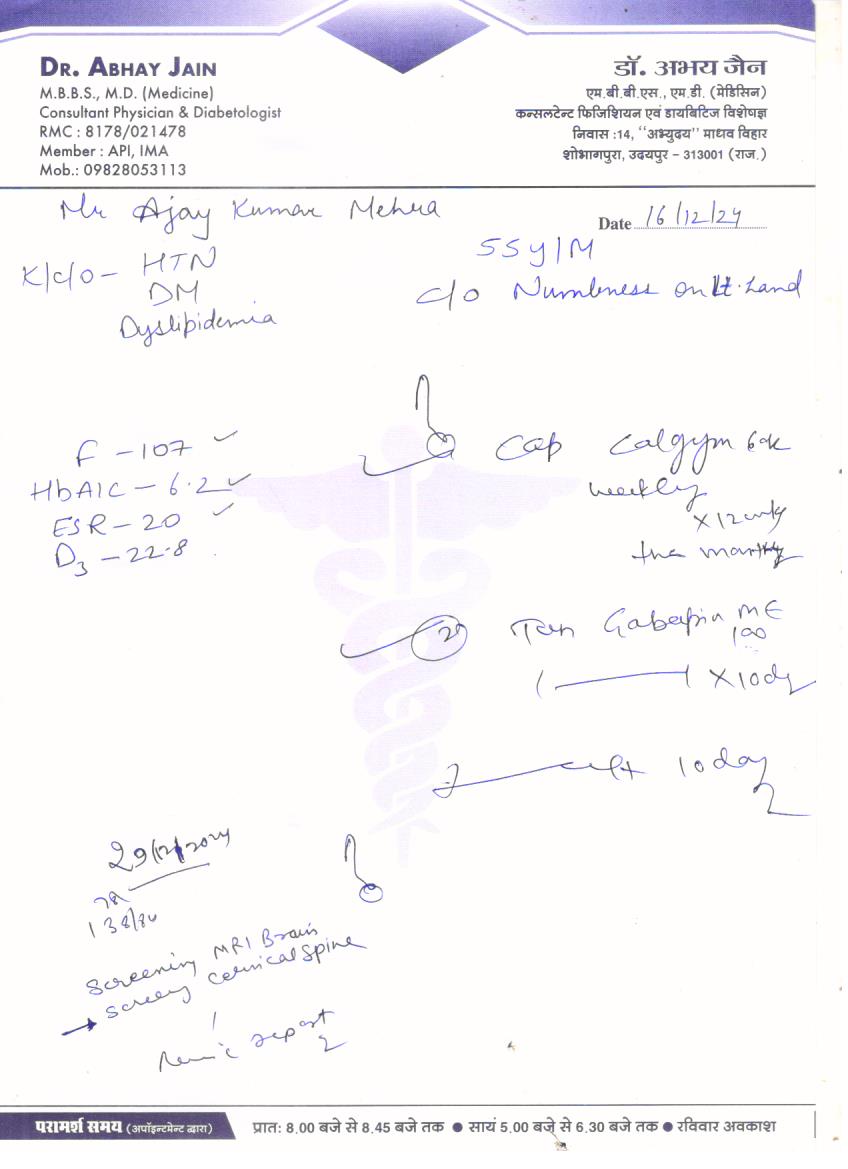 DR. ABHAY JAIN
M.B.B.S., M.D. (Medicine)
Consultant Physician & Diabetologist
RMC : 8178/021478
Member : API, IMA
Mob.: 09828053113
डॉ. अभय जैन
एम.बी.बी.एस., एम.डी. (मेडिसिन)
कन्सलटेन्ट फिजिशियन एवं डायबिटिज विशेषज्ञ
निवास :14, ‘‘अभ्युदय’’ माधव विहार
शोभागपुरा, उदयपुर – 313001 (राज.)
Mr Ajay Kumar Mehra
Date 16/12/24
55y/M
K/c/o - HTN
DM
Dyslipidemia
c/o Numbness on Lt. hand
F - 107
HbA1C - 6.2
ESR - 20
D3 - 22.8
Cap Calgym 60k
weekly
x 12 wkly
the monthly
Tab Gabapin ME
100
1 1 x 10dy
10 day
29/12/2024
138/80
Screening MRI Brain
Screeng Cervical Spine
report
परामर्श समय (अपॉइन्टमेन्ट द्वारा) प्रातः 8.00 बजे से 8.45 बजे तक ● सायं 5.00 बजे से 6.30 बजे तक ● रविवार अवकाश